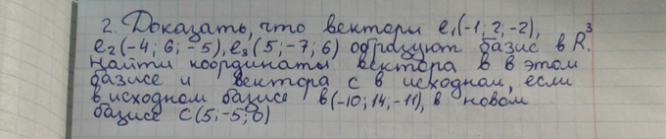 2. Доказать, что вектори e₁(-1; 2; -2),
e₂(-4; 6; -5), e₃(5; -7; 6) образуют базис в R³.
Найти координаты вектора в в этом
базисе и вектора с в исходном, если
в исходном базисе в(-10; 14; -11), в новом
базисе с(5; -5; 6)